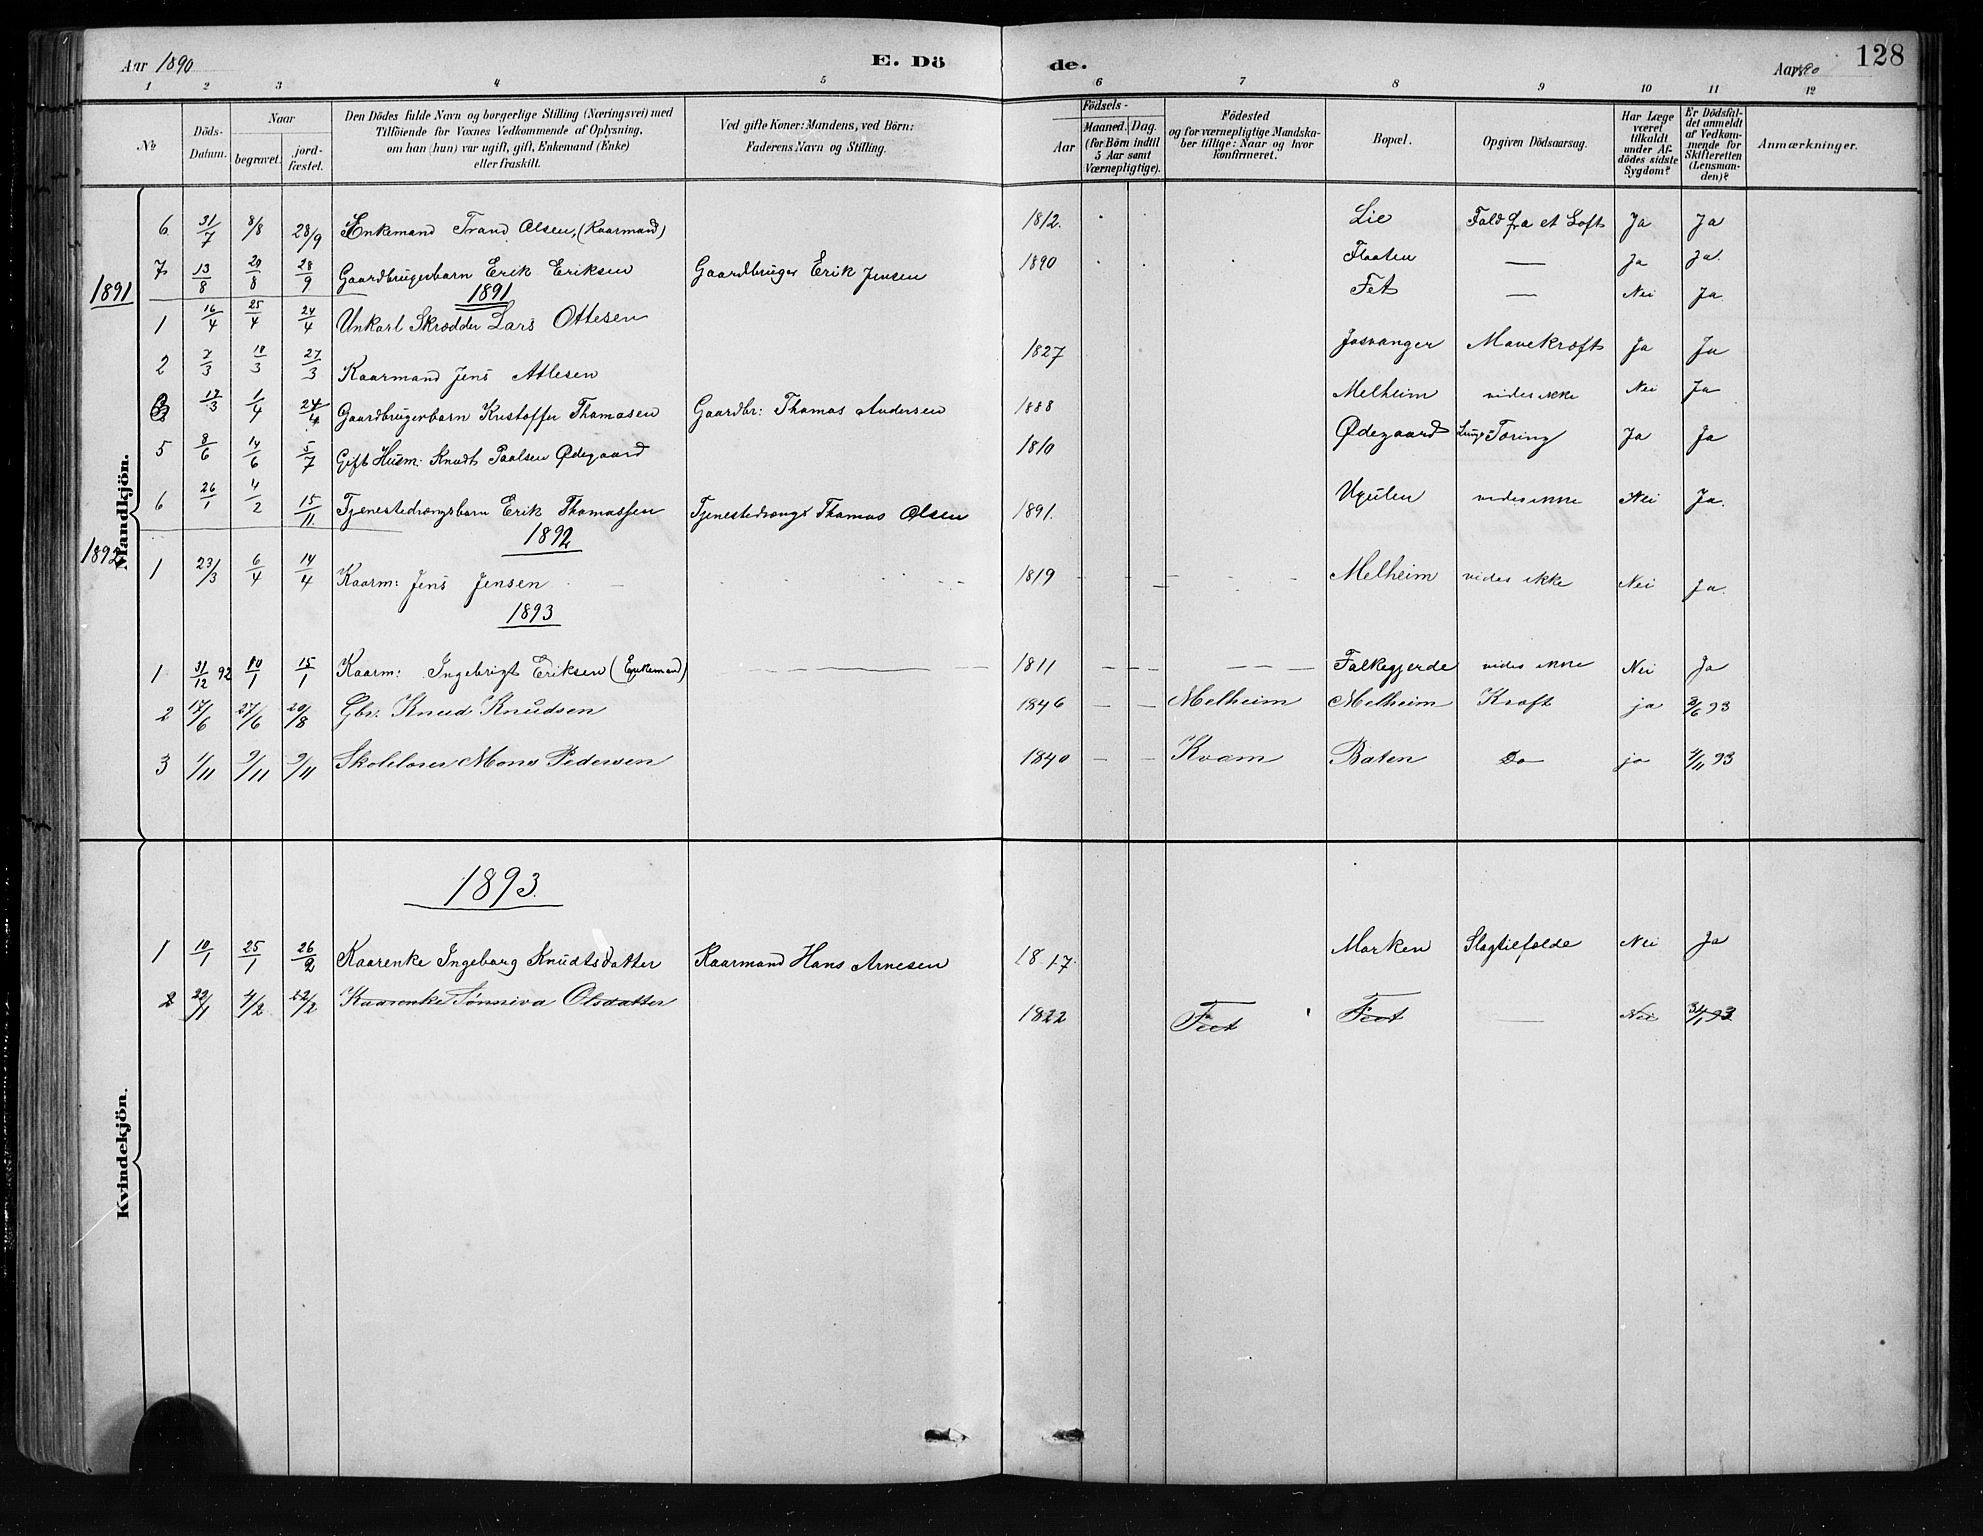 Aar 1890 E. Dö de. Aar 1890 128
1 2 3 4 5 6 7 8 9 10 11 12
№ Döds-Datum. Naar begravet. jord-fæstet. Den Dödes fulde Navn og borgerlige Stilling (Næringsvei) med Tilföiende for Voxnes Vedkommende af Oplysning, om han (hun) var ugift, gift, Enkemand (Enke) eller fraskilt. Ved gifte Koner: Mandens, ved Börn: Faderens Navn og Stilling. Födsels- Aar Maaned. Dag. (for Börn indtil 5 Aar samt Værnepligtige). Födested og for værnepligtige Mandska-ber tillige: Naar og hvor konfirmeret. Bopæl. Opgiven Dödsaarsag. Har Læge været tilkaldt under Af-dödes sidste Sygdom? Er Dödsfal-det anmeldt af Vedkom-mende for Skifteretten (Lensman-den)? Anmærkninger.
Mandkjön.
6 31/7 8/8 28/9 Enkemand Trond Olsen, (Kaarmand) 1812. Lie Fald fra et Loft Ja Ja
7 13/8 20/8 28/9 Gaardbrugerbarn Erik Eriksen Gaardbruger Erik Jensen 1890 Flaaten — Ja Ja.
1891 1891
1 16/4 25/4 24/4 Unkarl Skrædder Lars Ottesen Fet — Nei Ja
2 2/3 18/3 27/3 Kaarmand Jens Atlesen 1827 Josvanger Mavekræft Ja Ja
3 17/3 1/4 24/4 Gaardbrugerbarn Kristoffer Thomasen Gaardbr: Thomas Andersen 1888 Melheim vides ikke Nei Ja
5 8/6 14/6 5/7 Gift Husm: Knudt Paalsen Ødegaard 1810 Ødegaard Lunge Tæring Ja Ja
6 26/1 4/2 15/11 Tjenestedrengsbarn Erik Thomassen Tjenestedrengs Thomas Olsen 1891. vides ikke Nei Ja.
1892 1892
1 23/3 6/4 14/4 Kaarm: Jens Jensen 1819 Melheim vides ikke Nei Ja.
1893
1 31/12 92 10/1 15/1 Kaarm: Ingebrigt Eriksen (Enkemand) 1811 — — — — Falkegjerde vides ikke Nei Ja
2 17/6 27/6 20/8 Gbr: Knud Knudsen 1846 — — Melheim Melheim Kræft ja 2/6 93
3 1/11 9/11 9/11 Skolelærer Mons Pedersen 1840 — — Kvam Baten Do ja 4/11 93
Kvindekjön.
1893.
1 10/1 25/1 26/2 Kaarenke Ingeborg Knudtsdatter Kaarmand Hans Arnesen 1817. Marken Slagtilfælde Nei Ja
2 22/1 4/2 12/2 Kaarenke Sønneva Olsdatter 1822 Feet Feet — Nei 31/1 93